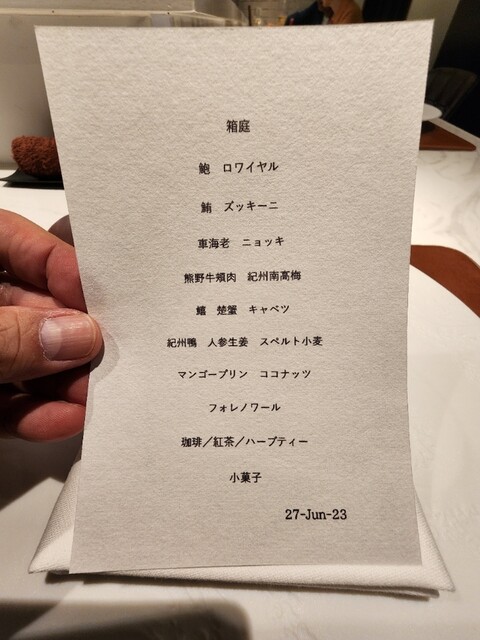 箱庭
鮑 ロワイヤル
鮪 ズッキーニ
車海老 ニョッキ
熊野牛頬肉 紀州南高梅
鱚 楚蟹 キャベツ
紀州鴨 人参生姜 スペルト小麦
マンゴープリン ココナッツ
フォレノワール
珈琲／紅茶／ハーブティー
小菓子
27-Jun-23